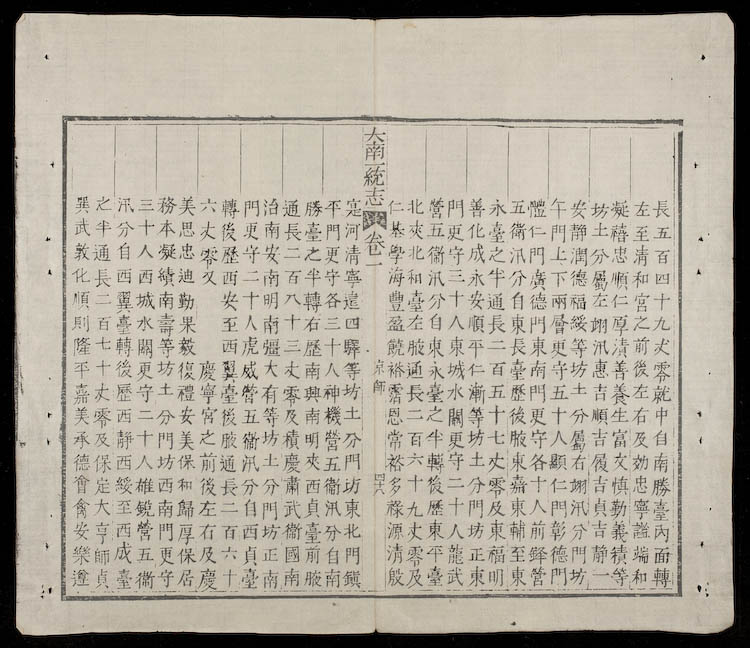 長五百四十九丈零就中自南勝臺內面轉
左至清和宮之前後左右及効忠寧謐端和
凝禧忠順仁厚漬善養生富文慎勤義積等
坊土分屬左翊汛惠吉順吉履吉貞吉靜一
安靜潤德福綏等坊土分屬右翊汛分門坊
午門上下兩層更守五十八顯仁門彰德門
體仁門廣德門東南門更守各十人前鋒營
五衞汛分自東長臺歷後腋東嘉東輔至東
永臺之半通長二百五十七丈零及東福明
善化成永安順平仁漸等坊土分門坊正東
門更守三十人東城水關更守二十人龍武
營五衞汛分自東永臺之半轉後歷東平臺
北夾北和臺左腋通長二百六十九丈零及
仁基學海豐盈饒裕霑恩常裕多祿源清殷
大南一統志 卷一 京師 四十六
寔河清寧遠四驛等坊土分門坊東北門鎭
平門更守各三十人神機營五衞汛分自南
勝臺之半轉右歷南興南明夾西貞臺前腋
通長二百八十三丈零及積慶肅武衞國南
治南安南明南彊大有等坊土分門坊正南
門更守二十人虎威營五衞汛分自西貞臺
轉後歷西安至西翼臺後腋通長二百六十
六丈零又 慶寧宮之前後左右及慶
美思忠迪勤果毅復禮安美保和歸厚保居
務本凝績南壽等坊土分門坊西南門更守
三十人西城水關更守二十人雄銳營五衞
汛分自西翼臺轉後歷西靜西綏至西成臺
之半通長二百七十丈零及保定大亨師貞
巽武敦化順則隆平嘉美承德會禽安樂遵